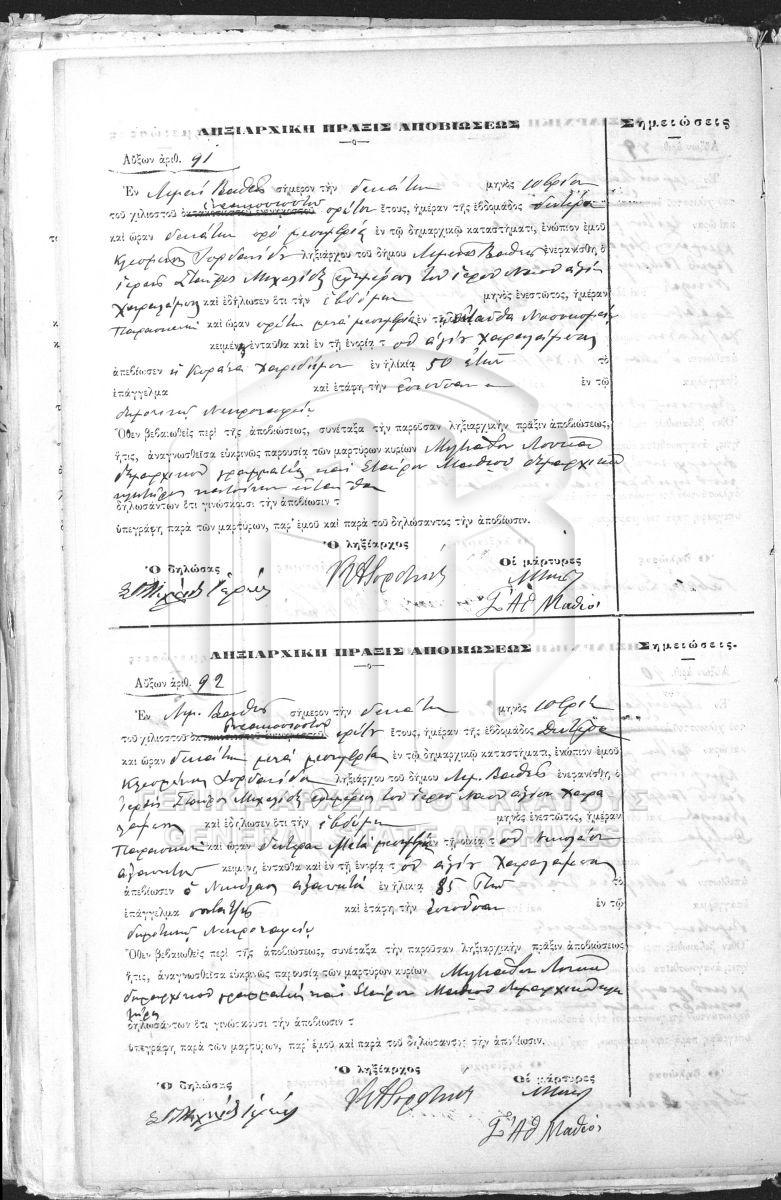 ΛΗΞΙΑΡΧΙΚΗ ΠΡΑΞΙΣ ΑΠΟΒΙΩΣΕΩΣ
Σημειώσεις
Αὔξων ἀριθ. 91
Ἐν Λιμένι Βαθέος σήμερον τὴν δεκάτην μηνὸς 10βρίου
τοῦ χιλιοστοῦ ἐννεακοσιοστοῦ πρώτου ἔτους, ἡμέραν τῆς ἑβδομάδος Δευτέρα
καὶ ὥραν δεκάτην πρὸ μεσημβρίας ἐν τῷ δημαρχικῷ καταστήματι, ἐνώπιον ἐμοῦ
Κλεομένους Ἰορδανίδου ληξιάρχου τοῦ δήμου Λιμένος Βαθέος ἐνεφανίσθη ὁ
ἱερεὺς Σταῦρος Μιχαλιάδης ἐφημέριος τοῦ ἱεροῦ Ναοῦ ἁγίου
Χαραλάμπους καὶ ἐδήλωσεν ὅτι τὴν ἑβδόμην μηνὸς ἐνεστῶτος, ἡμέραν
Παρασκευὴν καὶ ὥραν πρώτην μετὰ μεσημβρίαν ἐν τῷ ἐνταῦθα Νοσοκομείῳ
κειμένῳ ἐνταῦθα καὶ ἐν τῇ ἐνορίᾳ τοῦ ἁγίου Χαραλάμπους
ἀπεβίωσεν ἐν ἡλικίᾳ 50 ἐτῶν τὸ
ἐπάγγελμα καὶ ἐτάφη τὴν ἐπιοῦσαν ἐν τῷ
δημοτικῷ Νεκροταφείῳ
Ὅθεν βεβαιωθεὶς περὶ τῆς ἀποβιώσεως, συνέταξα τὴν παροῦσαν ληξιαρχικὴν πρᾶξιν ἀποβιώσεως,
ἥτις, ἀναγνωσθεῖσα εὐκρινῶς παρουσίᾳ τῶν μαρτύρων κυρίων Μιλτιάδου Λουκᾶ
δημαρχικοῦ γραμματέως καὶ Σταύρου Μαθιοῦ δημαρχικοῦ
κλητῆρος κατοίκων ἐνταῦθα
δηλωσάντων ὅτι γινώσκουσι τὴν ἀποβίωσιν τ
ὑπεγράφη παρὰ τῶν μαρτύρων, παρ' ἐμοῦ καὶ παρὰ τοῦ δηλώσαντος τὴν ἀποβίωσιν.
Ὁ δηλώσας
Ὁ ληξίαρχος
Οἱ μάρτυρες
ΛΗΞΙΑΡΧΙΚΗ ΠΡΑΞΙΣ ΑΠΟΒΙΩΣΕΩΣ
Σημειώσεις.
Αὔξων ἀριθ. 92
Ἐν Λιμ. Βαθέος σήμερον τὴν δεκάτην μηνὸς 10βρίου
τοῦ χιλιοστοῦ ἐννεακοσιοστοῦ πρώτου ἔτους, ἡμέραν τῆς ἑβδομάδος Δευτέρα
καὶ ὥραν δεκάτην μετὰ μεσημβρίαν ἐν τῷ δημαρχικῷ καταστήματι, ἐνώπιον ἐμοῦ
Κλεομένους Ἰορδανίδου ληξιάρχου τοῦ δήμου Λιμ. Βαθέος ἐνεφανίσθη, ὁ
ἱερεὺς Σταῦρος Μιχαλιάδης ἐφημέριος τοῦ ἱεροῦ Ναοῦ ἁγίου Χαρα
λάμπους καὶ ἐδήλωσεν ὅτι τὴν ἑβδόμην μηνὸς ἐνεστῶτος, ἡμέραν
Παρασκευὴν καὶ ὥραν δευτέραν μετὰ μεσημβρίαν ἐν τῇ οἰκίᾳ τοῦ Νικολάου
κειμένῃ ἐνταῦθα καὶ ἐν τῇ ἐνορίᾳ τοῦ ἁγίου Χαραλάμπους
ἀπεβίωσεν ὁ Νικόλαος ἐν ἡλικίᾳ 85 ἐτῶν τὸ
ἐπάγγελμα καὶ ἐτάφη τὴν ἐπιοῦσαν ἐν τῷ
δημοτικῷ Νεκροταφείῳ
Ὅθεν βεβαιωθεὶς περὶ τῆς ἀποβιώσεως, συνέταξα τὴν παροῦσαν ληξιαρχικὴν πρᾶξιν ἀποβιώσεως
ἥτις, ἀναγνωσθεῖσα εὐκρινῶς παρουσίᾳ τῶν μαρτύρων κυρίων Μιλτιάδου Λουκᾶ
δημαρχικοῦ γραμματέως καὶ Σταύρου Μαθιοῦ δημαρχικοῦ κλη
τῆρος
δηλωσάντων ὅτι γινώσκουσι τὴν ἀποβίωσιν τ
ὑπεγράφη παρὰ τῶν μαρτύρων, παρ' ἐμοῦ καὶ παρὰ τοῦ δηλώσαντος τὴν ἀποβίωσιν.
Ὁ δηλώσας
Ὁ ληξίαρχος
Οἱ μάρτυρες
ΓΕΝΙΚΑ ΑΡΧΕΙΑ ΤΟΥ ΚΡΑΤΟΥΣ
GENERAL STATE ARCHIVES